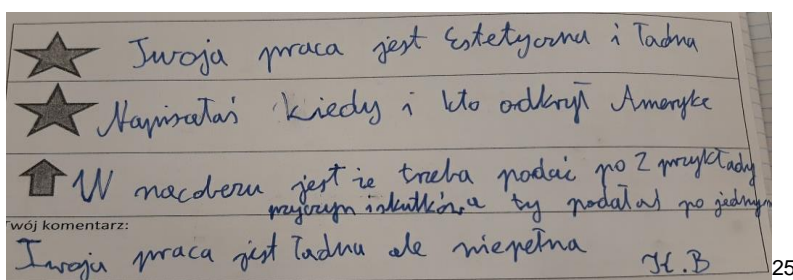 Twoja praca jest Estetyczna i Ładna
Napisałaś kiedy i kto odkrył Amerykę
W nacoberu jest że trzeba podać po 2 przykłady
przyczyn i skutków a ty podałaś po jednym
Twój komentarz:
Twoja praca jest Ładna ale niepełna
H.B
25